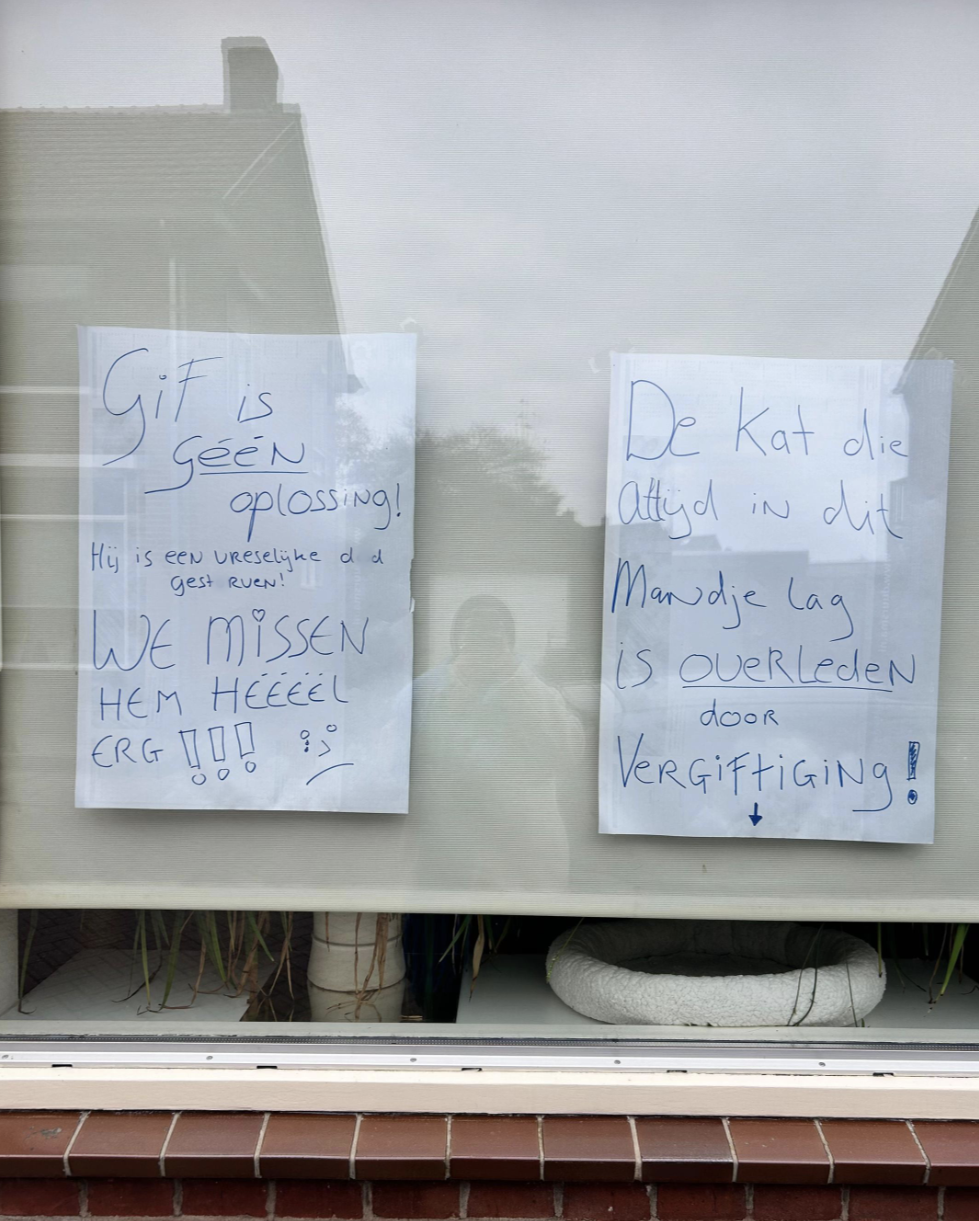 GiF is
GéÉN
oplossing!
Hij is eeN vreselijke d d
gest rven!
WE MiSSEN
HEM HÉÉÉÉL
ERG !!!
De Kat die
altijd iN dit
Mandje lag
iS OVERLedeN
dooR
VeRGiFtiGiNg!